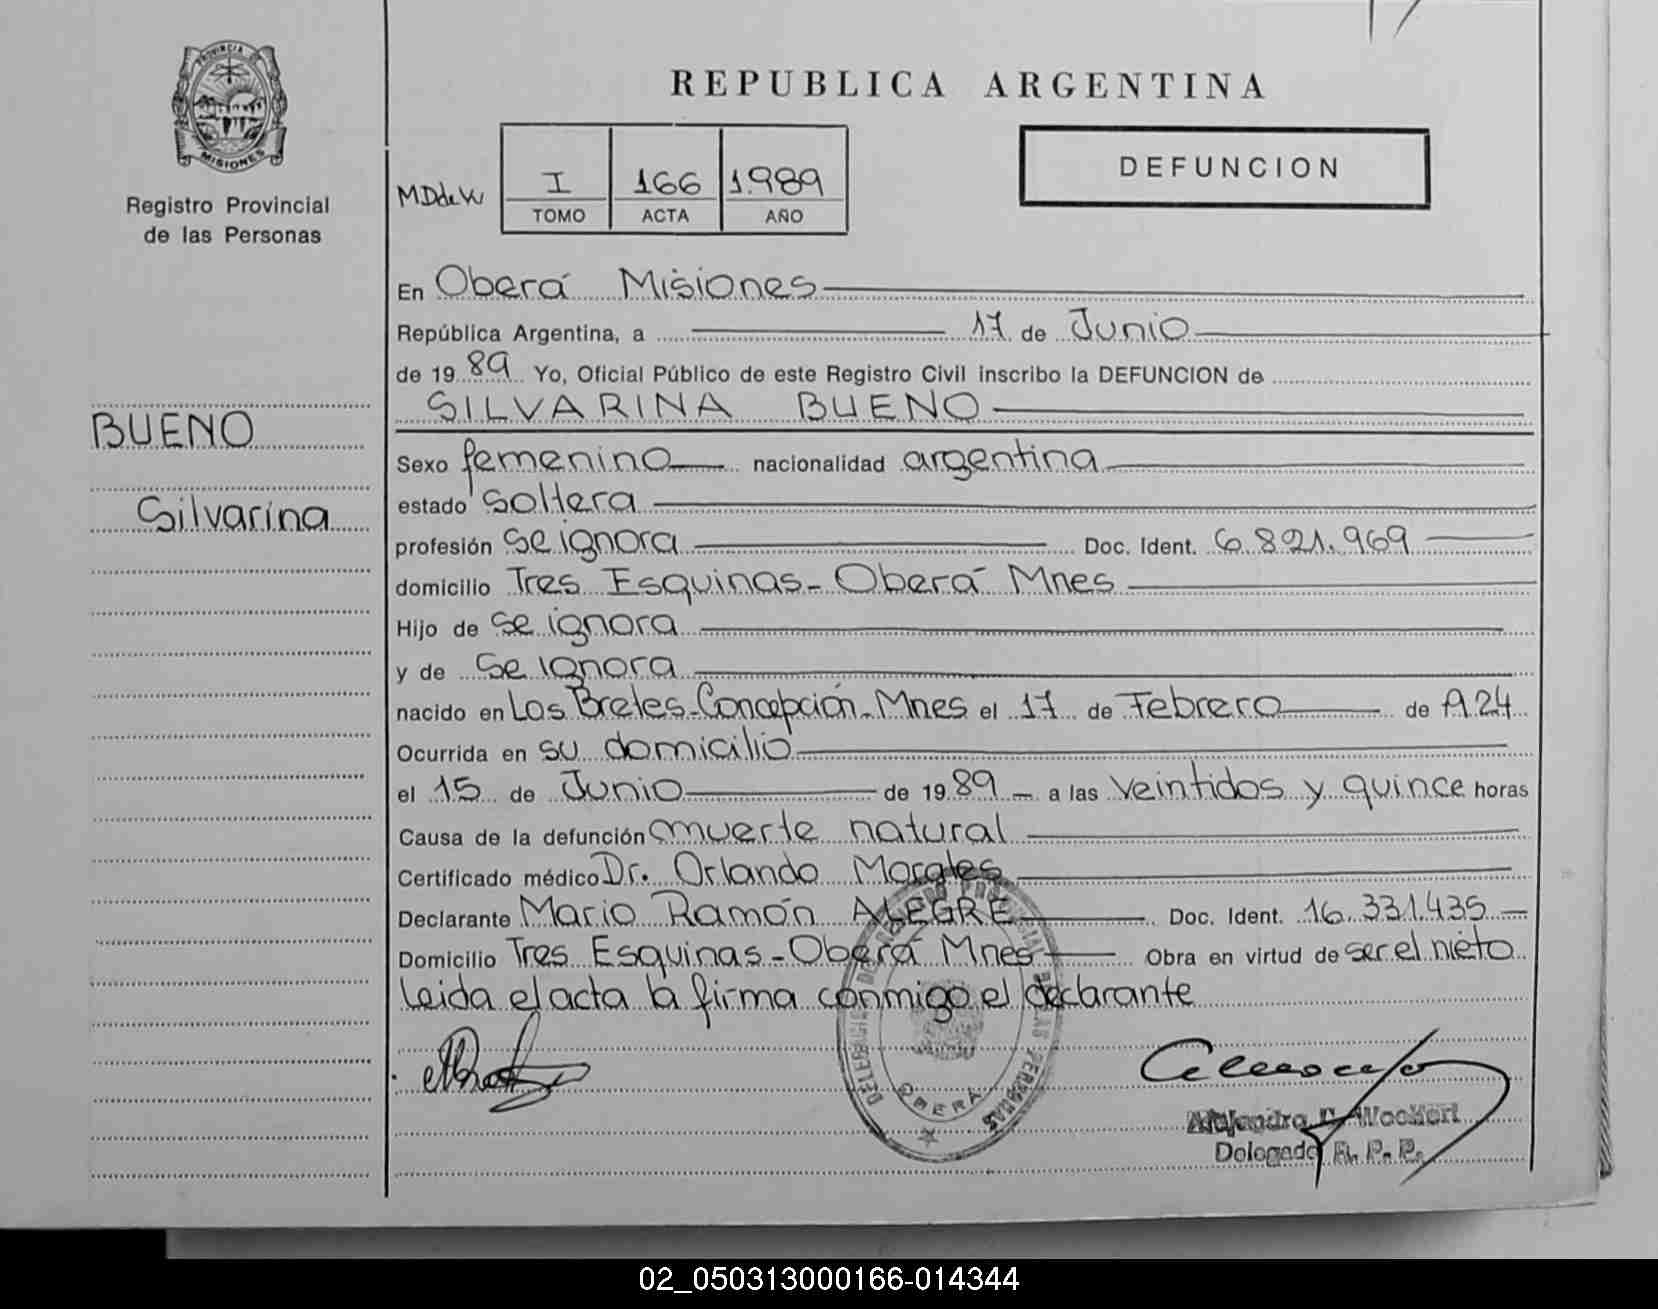 PROVINCIA DE
MISIONES
Registro Provincial
de las Personas
BUENO
Silvarina
REPUBLICA ARGENTINA
MDdeW
I 166 1.989
TOMO ACTA AÑO
DEFUNCION
En Oberá Misiones
República Argentina, a 17 de Junio
de 19 89 Yo, Oficial Público de este Registro Civil inscribo la DEFUNCION de
SILVARINA BUENO
Sexo femenino nacionalidad argentina
estado soltera
profesión se ignora Doc. Ident. 6.821.969
domicilio Tres Esquinas - Oberá Mnes
Hijo de se ignora
y de se ignora
nacido en Los Bretes - Concepción - Mnes el 17 de Febrero de 1.924
Ocurrida en su domicilio
el 15 de Junio de 19 89 a las veintidos y quince horas
Causa de la defunción muerte natural
Certificado médico Dr. Orlando Morales
Declarante Mario Ramón ALEGRE Doc. Ident. 16.331.435
Domicilio Tres Esquinas - Oberá Mnes Obra en virtud de ser el nieto
Leida el acta la firma conmigo el declarante
DELEGACION DEL REGISTRO PROVINCIAL DE LAS PERSONAS
OBERÁ
Alejandro
Delegado R. P. P.
02_050313000166-014344